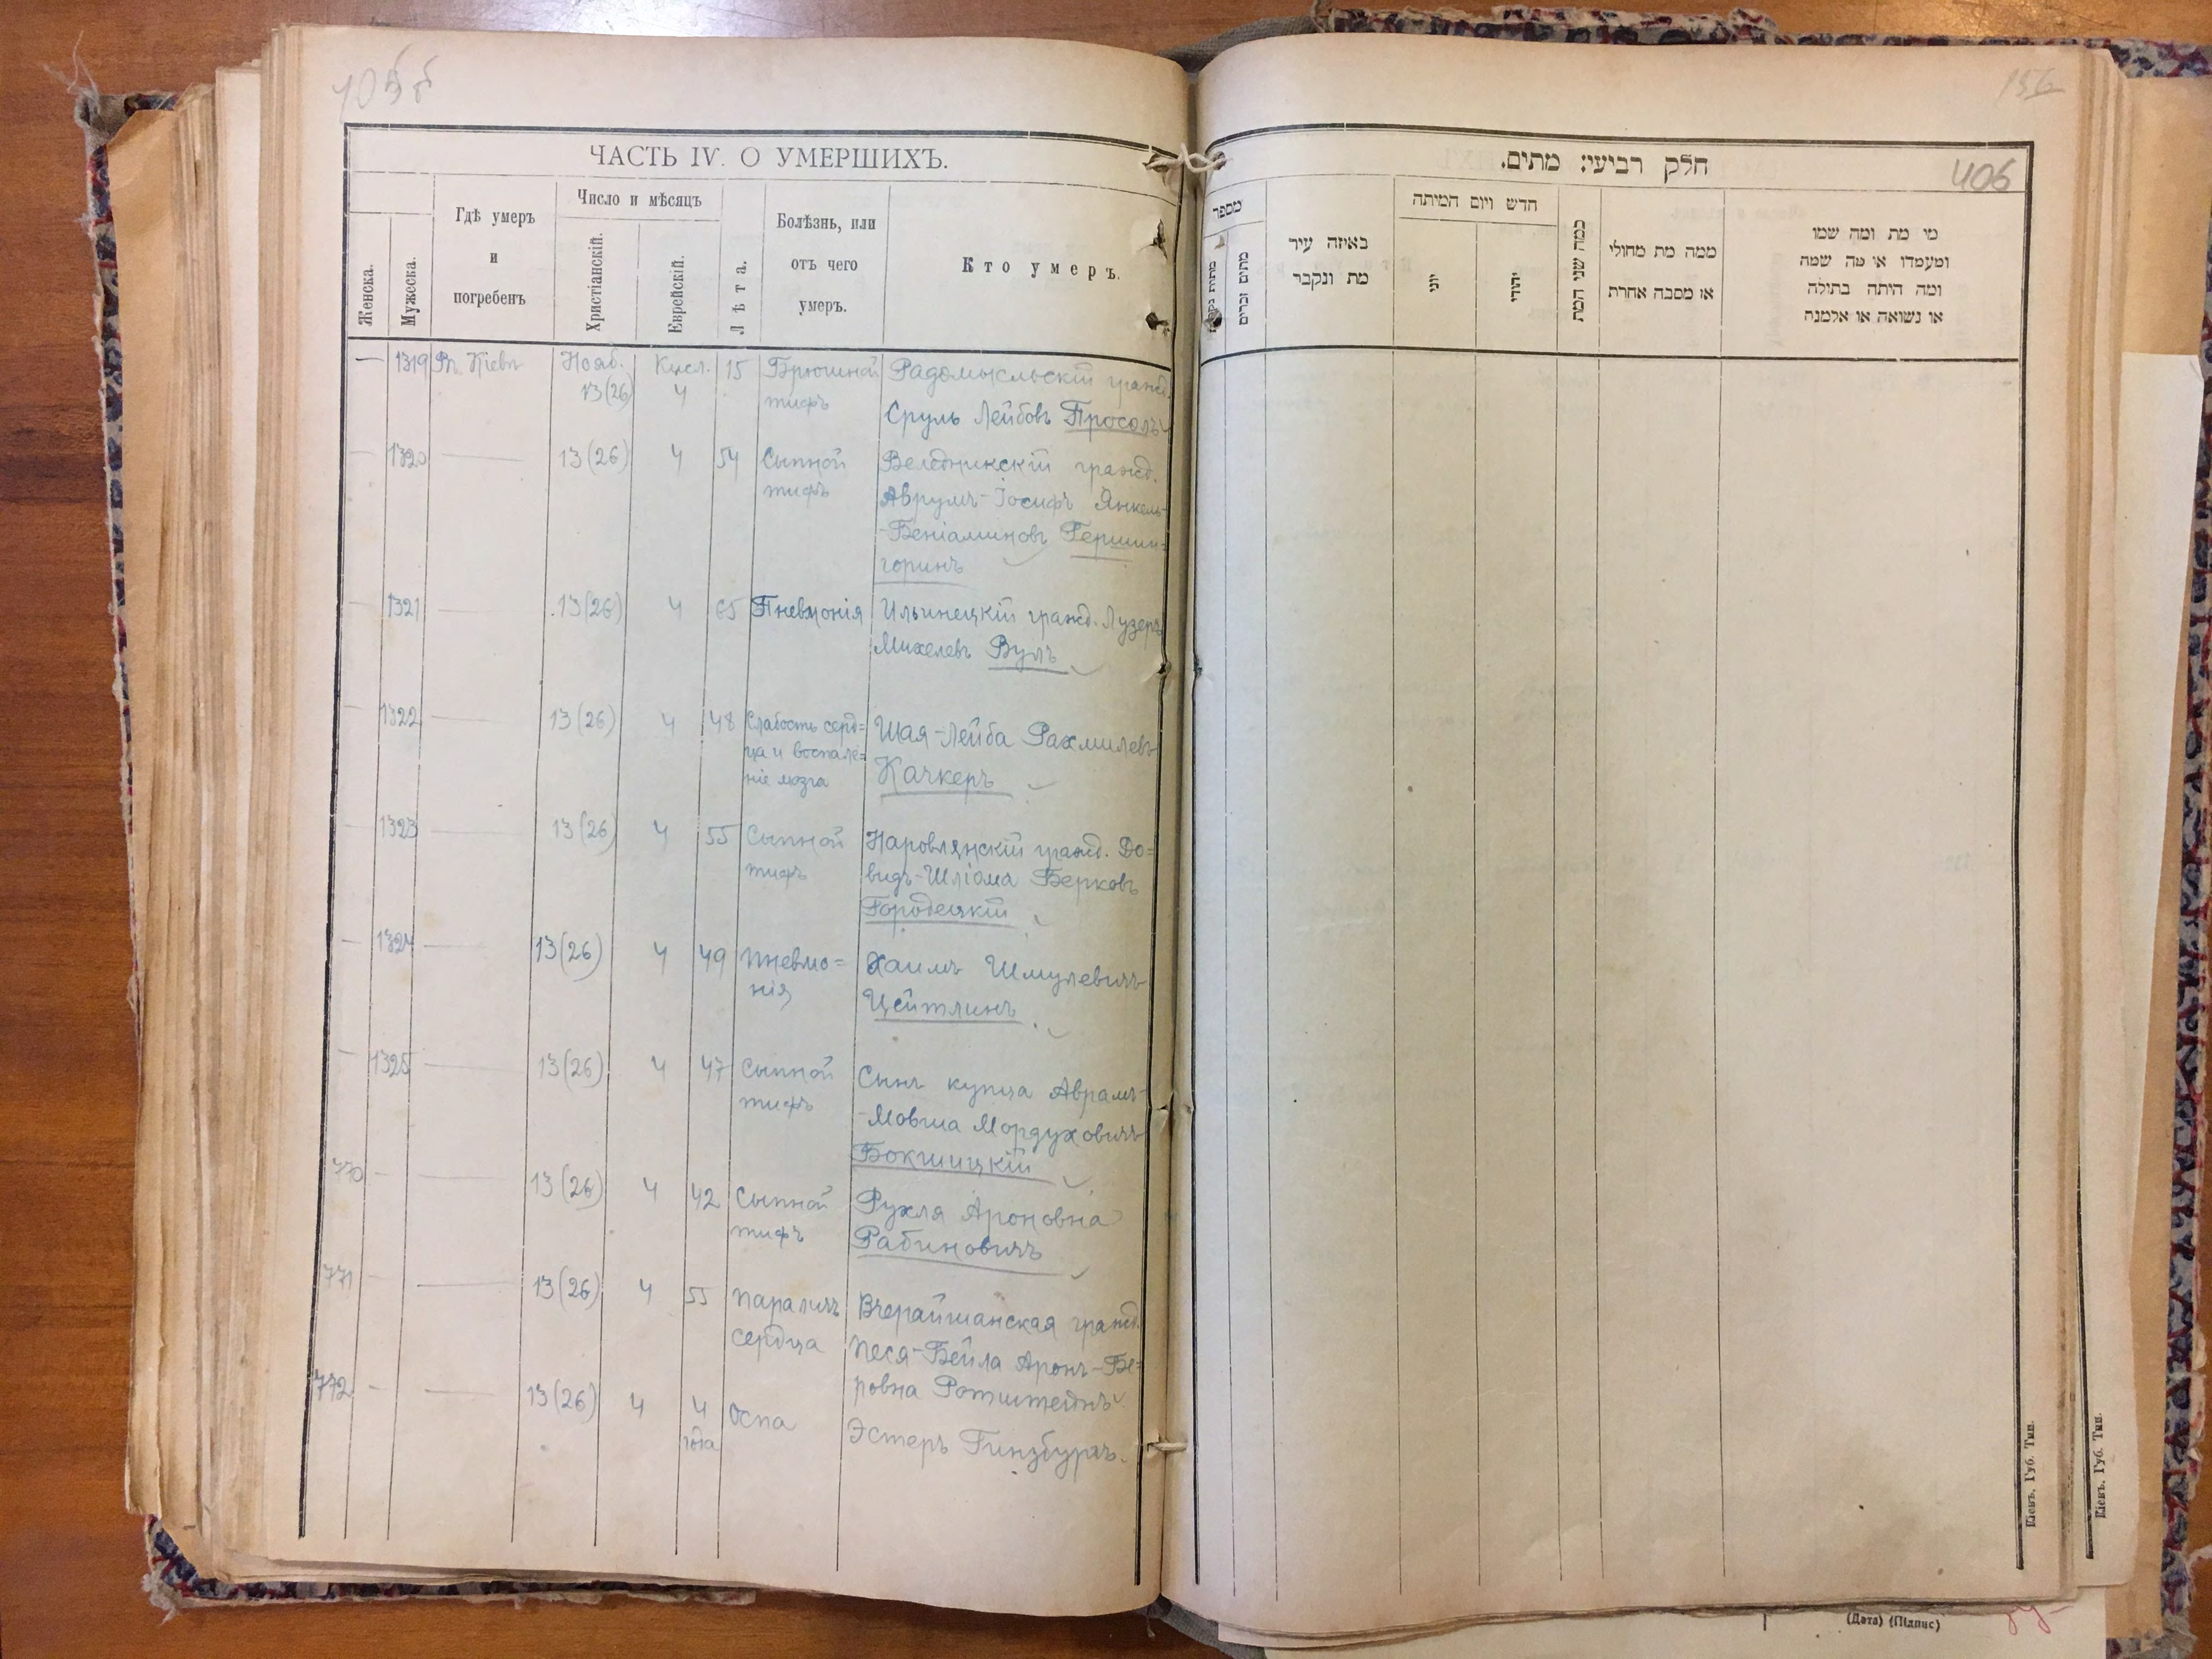 ЧАСТЬ IV. О УМЕРШИХЪ.
Женска.
Мужеска.
Гдѣ умеръ
и
погребенъ
Число и мѣсяцъ
Христіанскій.
Еврейскій.
Лѣта.
Болѣзнь, или
отъ чего
умеръ.
Кто умеръ.
— 1319 Въ Кіевѣ Нояб. Кисл. 15 Брюшной Радомысльскій гражд.
13(26) 4 тифъ
Сруль Лейбовъ Просолъ
— 1320 — 13(26) 4 54 Сыпной Веледникскій гражд.
тифъ Аврумъ-Іосифъ Янкель-
-Беніаминовъ Гершин-
горинъ
— 1321 — 13(26) 4 65 Пневмонія Ильинецкій гражд. Лузеръ
Михелевъ Вулъ
— 1322 — 13(26) 4 48 Слабость серд= Шая-Лейба Рахмилевъ
ца и воспале=
ніе мозга Качкеръ
— 1323 — 13(26) 4 55 Сыпной Наровлянскій гражд. До=
тифъ видъ-Шліома Берковъ
Городецкій
— 1324 — 13(26) 4 49 Пневмо= Хаимъ Шмулевичъ
нія Цейтлинъ
— 1325 — 13(26) 4 47 Сыпной Сынъ купца Аврамъ-
тифъ -Мовша Мордуховичъ
Бокшицкій
770 — — 13(26) 4 42 Сыпной Рухля Ароновна
тифъ Рабиновичъ
771 — — 13(26) 4 55 Параличъ Вчерайшанская гражд.
сердца Песя-Бейла Аронъ-Бе=
ровна Ротштейнъ
772 — — 13(26) 4 4 Оспа Эстеръ Гинзбургъ.
года
156
חלק רביעי: מתים.
406
מספר
מתים זכרים
באיזה עיר
מת ונקבר
חדש ויום המיתה
יוני
יהודי
כמה שני המת
ממה מת מחולי
או מסבה אחרת
מי מת ומה שמו
ומעמדו או מה שמה
ומה היתה בתולה
או נשואה או אלמנה
Кіевъ. Губ. Тип.
Кіевъ. Губ. Тип.
(Дата) (Підпис)